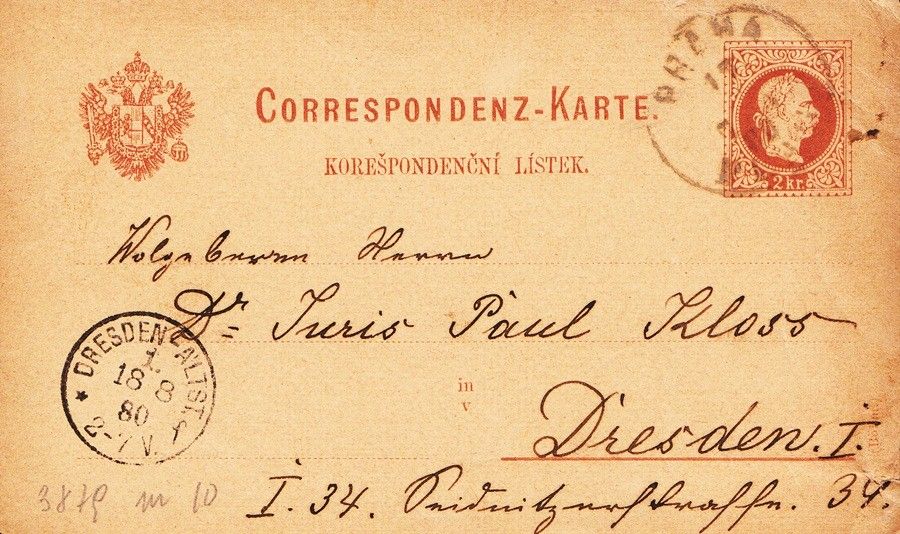 PRAHA
CORRESPONDENZ-KARTE.
KOREŠPONDENČNÍ LÍSTEK.
2 kr.
Wolgeberenn Herrn
Dr Juris Paul Kloss
in
v
Dresden. I.
I. 34. Seidnitzerstrasse. 34.
DRESDEN-ALTST.
1.
18 8
80
2-7 V. f
3879 m 10